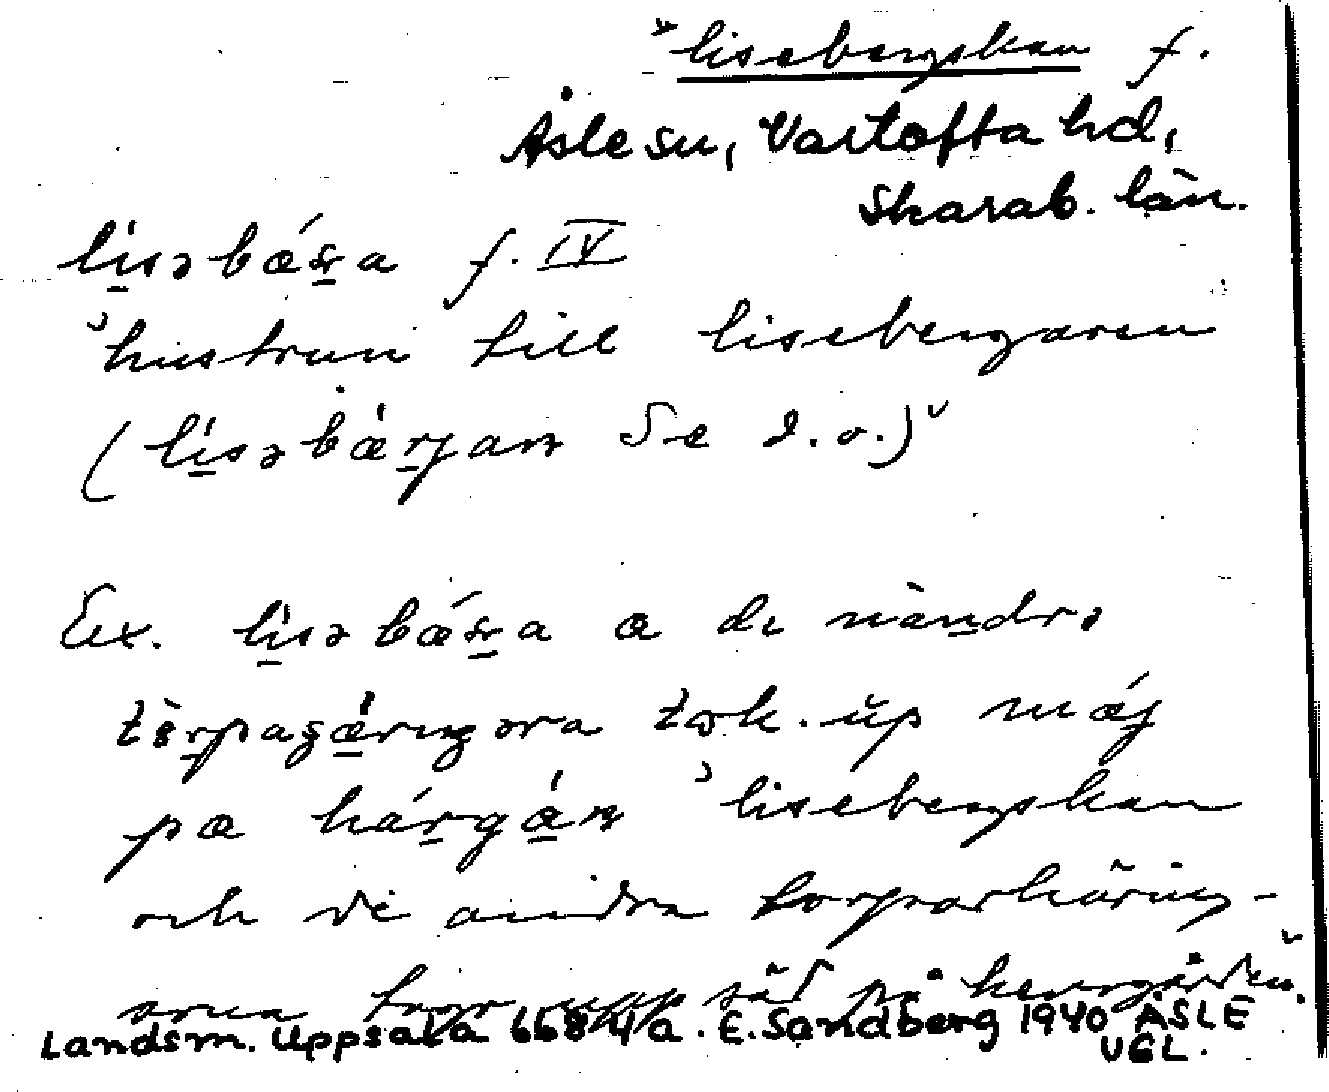 "lisebergskan f.
Åsle sn, Vartofta hd,
Skarab. län.
lisəbǽs̱a f. IV
"hustrun till lisebergaren
(lísəbærjan Se d.o.)"
Ex. lisəbǽs̱a a di nàndrə
tok. ùp mæj
pa hærgán "lisebergskan
och vi andra torparkäring-
orna togo upp säd på herrgården".
Landsm. Uppsala 668 4/a. E. Sandberg 1940 ÅSLE
VGL.